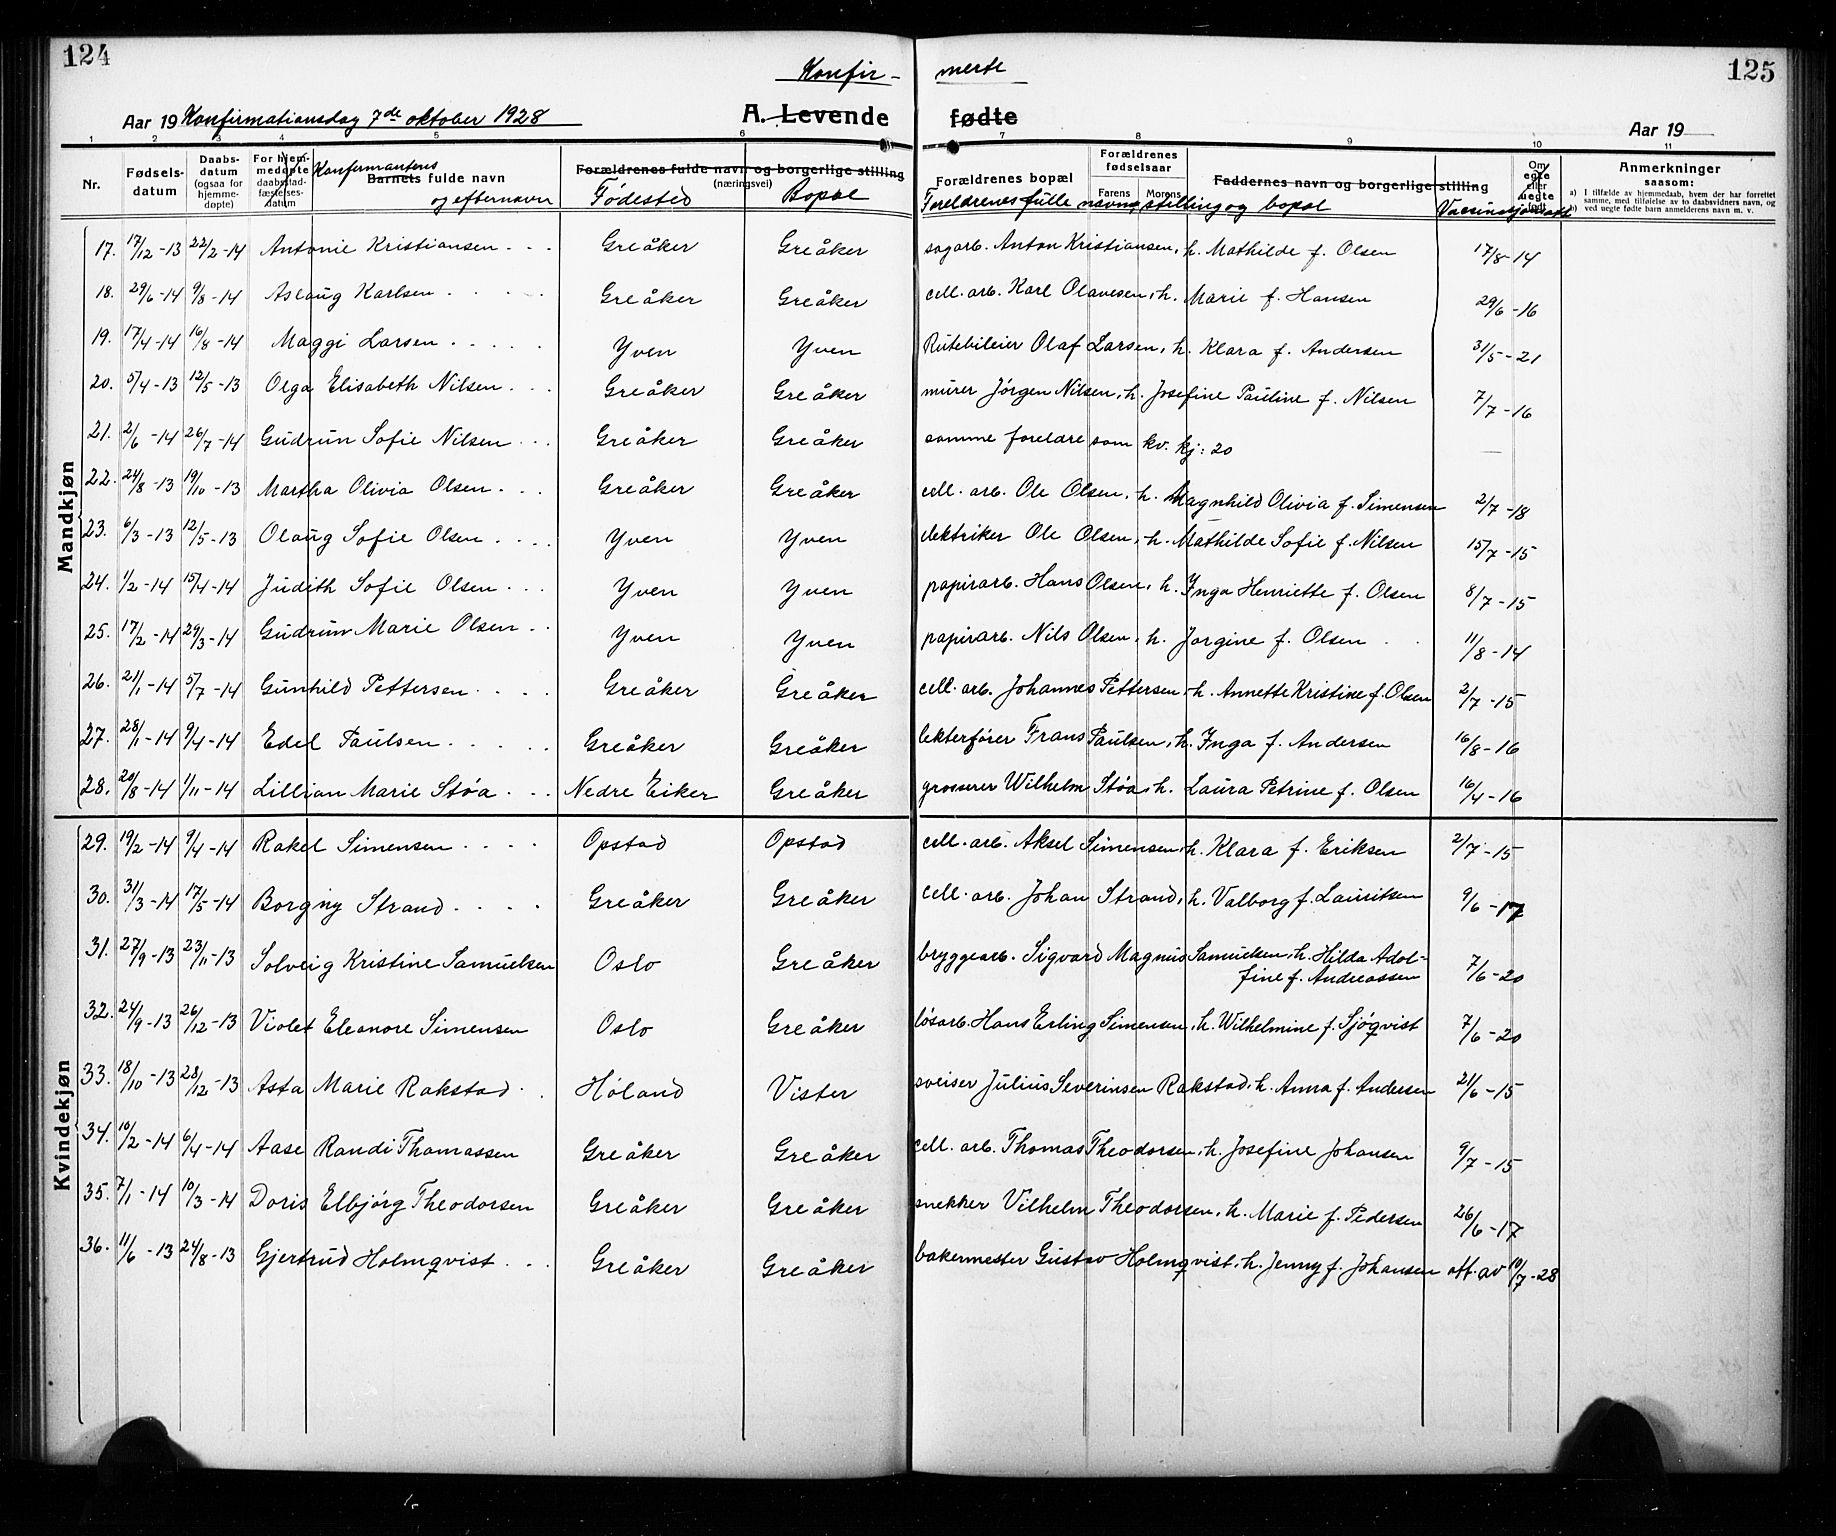 124
125
Konfir- merte
Aar 19 Konfirmationsdag 7de oktober 1928 A. Levende fødte Aar 19
1 2 3 4 5 6 7 8 9 10 11
Nr. Fødsels-datum Daabs-datum (ogsaa for hjemme-døpte) For hjem-medøpte daabsstad-fæstelses-datum Konfirmantens Barnets fulde navn og efternavn Forældrenes fulde navn og borgerlige stilling (næringsvei) Fødested Bopæl Forældrenes bopæl Forældrenes fødselsaar Farens Morens Foreldrenes fulle navn, stilling og bopæl Faddernes navn og borgerlige stilling Vaccinasjonsatt. Om egte eller uegte født Anmerkninger saasom:
a) I tilfælde av hjemmedaab, hvem der har forrettet samme, med tilføielse av to daabsvidners navn, og
b) ved uegte fødte barn anmelderens navn m. v.
Mandkjøn
17. 17/12-13 22/2-14 Antonie Kristiansen Greåker Greåker sagarb. Anton Kristiansen, h. Mathilde f. Olsen 17/8-14
18. 29/6-14 9/8-14 Aslaug Karlsen Greåker Greåker cell. arb. Karl Olavesen, h. Marie f. Hansen 29/6-16
19. 17/4-14 16/8-14 Maggi Larsen Yven Yven Rutebileier Olaf Larsen, h. Klara f. Andersen 31/5-21
20. 5/4-13 12/5-13 Olga Elisabeth Nilsen Greåker Greåker murer Jörgen Nilsen, h. Josefine Pauline f. Nilsen 7/7-16
21. 2/6-14 26/7-14 Gudrun Sofie Nilsen Greåker Greåker samme foreldre som kv. kj: 20 —
22. 24/8-13 19/10-13 Martha Olivia Olsen Greåker Greåker cell. arb. Ole Olsen, h. Magnhild Olivia f. Simensen 2/7-18
23. 6/3-13 12/5-13 Olaug Sofie Olsen Yven Yven elektriker Ole Olsen, h. Mathilde Sofie f. Nilsen 15/7-15
24. 1/2-14 15/4-14 Judith Sofie Olsen Yven Yven papirarb. Hans Olsen, h. Inga Henriette f. Olsen 8/7-15
25. 17/2-14 29/3-14 Gudrun Marie Olsen Yven Yven papirarb. Nils Olsen, h. Jörgine f. Olsen 11/8-14
26. 21/1-14 5/7-14 Gunhild Pettersen Greåker Greåker cell. arb. Johannes Pettersen, h. Annette Kristine f. Olsen 2/7-15
27. 28/1-14 9/4-14 Edel Paulsen Greåker Greåker lekterfører Frans Paulsen, h. Inga f. Andersen 16/8-16
28. 20/8-14 1/11-14 Lillian Marie Støa Nedre Eiker Greåker grosserer Wilhelm Støa, h. Laura Petrine f. Olsen 16/4-16
Kvindekjøn
29. 19/2-14 9/4-14 Rakel Simensen Opstad Opstad cell. arb. Aksel Simensen, h. Klara f. Eriksen 2/7-15
30. 31/3-14 17/5-14 Borgny Strand Greåker Greåker cell. arb. Johan Strand, h. Valborg f. Lauritsen 9/6-17
31. 27/9-13 23/11-13 Solveig Kristine Samuelsen Oslo Greåker bryggearb. Sigvard Magnus Samuelsen, h. Hilda Adol-
fine f. Andreassen 7/6-20
32. 24/9-13 26/12-13 Violet Eleanore Simensen Oslo Greåker løsarb. Hans Erling Simensen, h. Wilhelmine f. Sjøqvist 7/6-20
33. 18/10-13 28/12-13 Asta Marie Rakstad Høland Vister sveiser Julius Severinsen Rakstad, h. Anna f. Andersen 21/6-15
34. 10/2-14 6/4-14 Aase Randi Thomassen Greåker Greåker cell. arb. Thomas Theodorsen, h. Josefine Johansen 9/7-15
35. 7/1-14 10/3-14 Doris Elbjörg Theodorsen Greåker Greåker snekker Vilhelm Theodorsen, h. Marie f. Pedersen 26/6-17
36. 11/6-13 24/8-13 Gjertrud Holmqvist Greåker Greåker bakermester Gustav Holmqvist, h. Jenny f. Johansen att. av 10/7-28